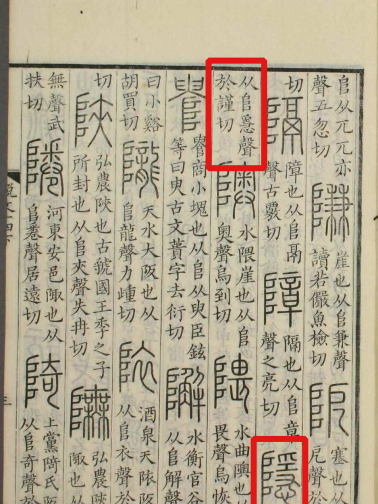 𨸏从兀兀亦
聲五忽切
隒
崖也从𨸏兼聲
讀若儼魚檢切
阸
塞也从
切
隔
障也从𨸏鬲
聲古覈切
障
隔也从𨸏章
聲之亮切
隱
从𨸏㥯聲
於謹切
隩
水隈崖也从𨸏
奥聲烏到切
隈
水曲隩也从
𨸏畏聲烏恢
𨺅
𨺅商小塊也从𨸏从臾臣鉉
等曰臾古文蕢字去衍切
水衡官谷
从𨸏解聲
曰小谿
胡買切
隴
天水大阪也从
𨸏龍聲力歱切
酒泉天依阪
从𨸏衣聲於
切
陝
弘農陝也古虢國王季之子
所封也从𨸏夾聲失冉切
弘農陝
陬也从
無聲武
扶切
河東安邑陬也从
聲居遠切
陭
上黨陭氏阪
从𨸏奇聲於